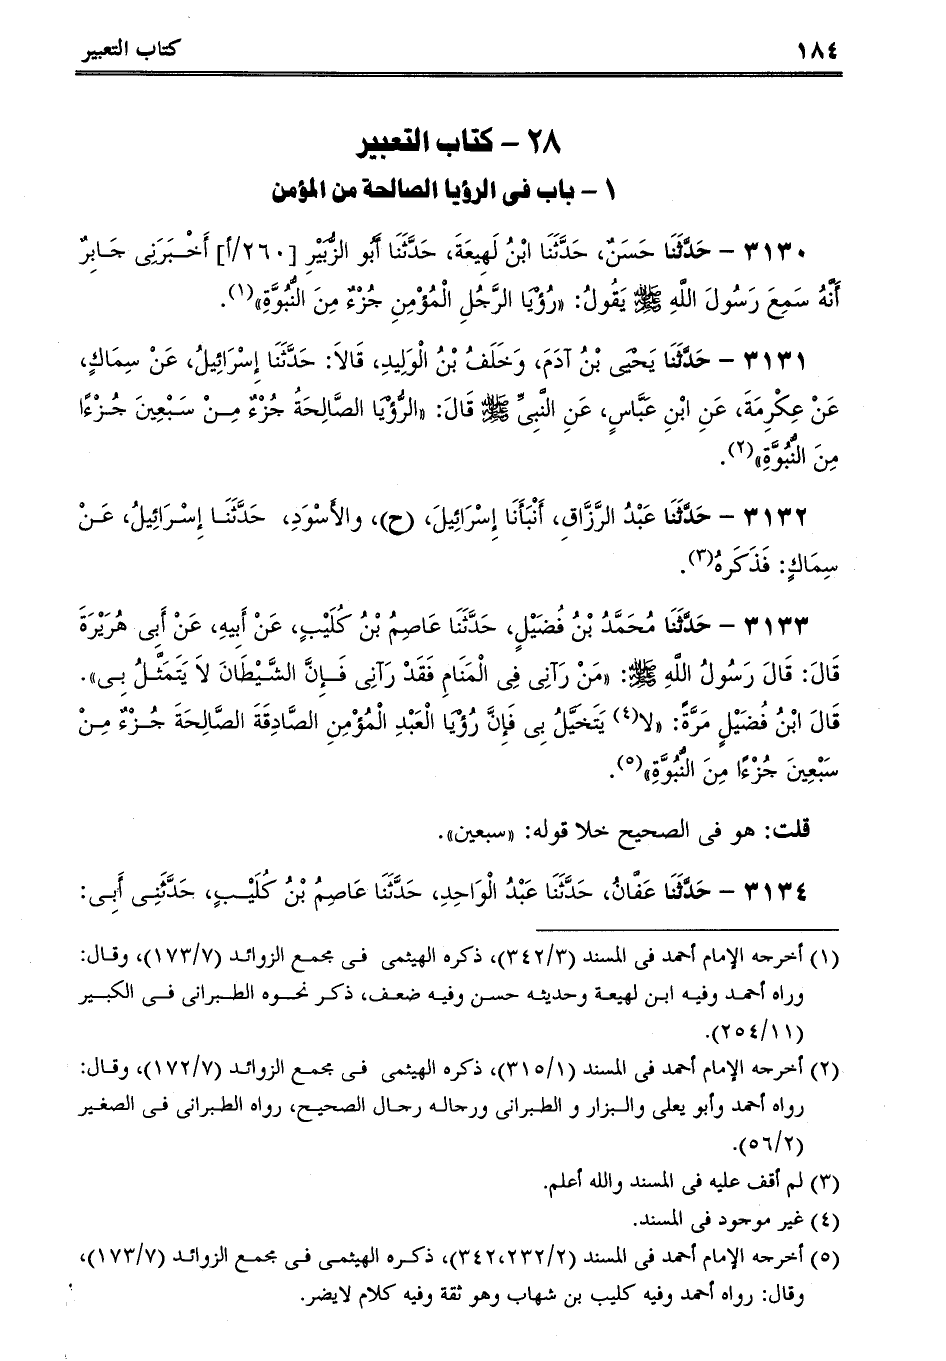 ١٨٤ كتاب التعبير
٢٨ – كتاب التعبير
١ – باب فى الرؤيا الصالحة من المؤمن
٣١٣٠ – حَدَّثَنَا حَسَنٌ، حَدَّثَنَا ابْنُ لَهِيعَةَ، حَدَّثَنَا أَبُو الزُّبَيْرِ [٢٦٠/أ] أَخْبَرَنِى جَابِرٌ
أَنَّهُ سَمِعَ رَسُولَ اللَّهِ ﷺ يَقُولُ: «رُؤْيَا الرَّجُلِ الْمُؤْمِنِ جُزْءٌ مِنَ النُّبُوَّةِ»(١).
٣١٣١ – حَدَّثَنَا يَحْيَى بْنُ آدَمَ، وَخَلَفُ بْنُ الْوَلِيدِ، قَالاَ: حَدَّثَنَا إِسْرَائِيلُ، عَنْ سِمَاكٍ،
عَنْ عِكْرِمَةَ، عَنِ ابْنِ عَبَّاسٍ، عَنِ النَّبِىِّ ﷺ قَالَ: «الرُّؤْيَا الصَّالِحَةُ جُزْءٌ مِنْ سَبْعِينَ جُزْءًا
مِنَ النُّبُوَّةِ»(٢).
٣١٣٢ – حَدَّثَنَا عَبْدُ الرَّزَّاقِ، أَنْبَأَنَا إِسْرَائِيلَ، (ح)، والأَسْوَدِ، حَدَّثَنَا إِسْرَائِيلُ، عَنْ
سِمَاكٍ: فَذَكَرهُ(٣).
٣١٣٣ – حَدَّثَنَا مُحَمَّدُ بْنُ فُضَيْلٍ، حَدَّثَنَا عَاصِمُ بْنُ كُلَيْبٍ، عَنْ أَبِيهِ، عَنْ أَبِى هُرَيْرَةَ
قَالَ: قَالَ رَسُولُ اللَّهِ ﷺ: «مَنْ رَآنِى فِى الْمَنَامِ فَقَدْ رَآنِى فَإِنَّ الشَّيْطَانَ لاَ يَتَمَثَّلُ بِى».
قَالَ ابْنُ فُضَيْلٍ مَرَّةً: «لا(٤) يَتَخَيَّلُ بِى فَإِنَّ رُؤْيَا الْعَبْدِ الْمُؤْمِنِ الصَّادِقَةَ الصَّالِحَةَ جُزْءٌ مِنْ
سَبْعِينَ جُزْءًا مِنَ النُّبُوَّةِ»(٥).
قلت: هو فى الصحيح خلا قوله: «سبعين».
٣١٣٤ – حَدَّثَنَا عَفَّانُ، حَدَّثَنَا عَبْدُ الْوَاحِدِ، حَدَّثَنَا عَاصِمُ بْنُ كُلَيْبٍ، حَدَّثَنِى أَبِى:
(١) أخرجه الإمام أحمد فى المسند (٣٤٢/٣)، ذكره الهيثمى فى مجمع الزوائد (١٧٣/٧)، وقال:
وراه أحمد وفيه ابن لهيعة وحديثه حسن وفيه ضعف، ذكر نحوه الطبرانى فى الكبير
(٢٥٤/١١).
(٢) أخرجه الإمام أحمد فى المسند (٣١٥/١)، ذكره الهيثمى فى مجمع الزوائد (١٧٢/٧)، وقال:
رواه أحمد وأبو يعلى والبزار و الطبرانى ورحاله رحال الصحيح، رواه الطبرانى فى الصغير
(٥٦/٢).
(٣) لم أقف عليه فى المسند والله أعلم.
(٤) غير موجود فى المسند.
(٥) أخرجه الإمام أحمد فى المسند (٣٤٢،٢٣٢/٢)، ذكره الهيثمى فى مجمع الزوائد (١٧٣/٧)،
وقال: رواه أحمد وفيه كليب بن شهاب وهو ثقة وفيه كلام لايضر.